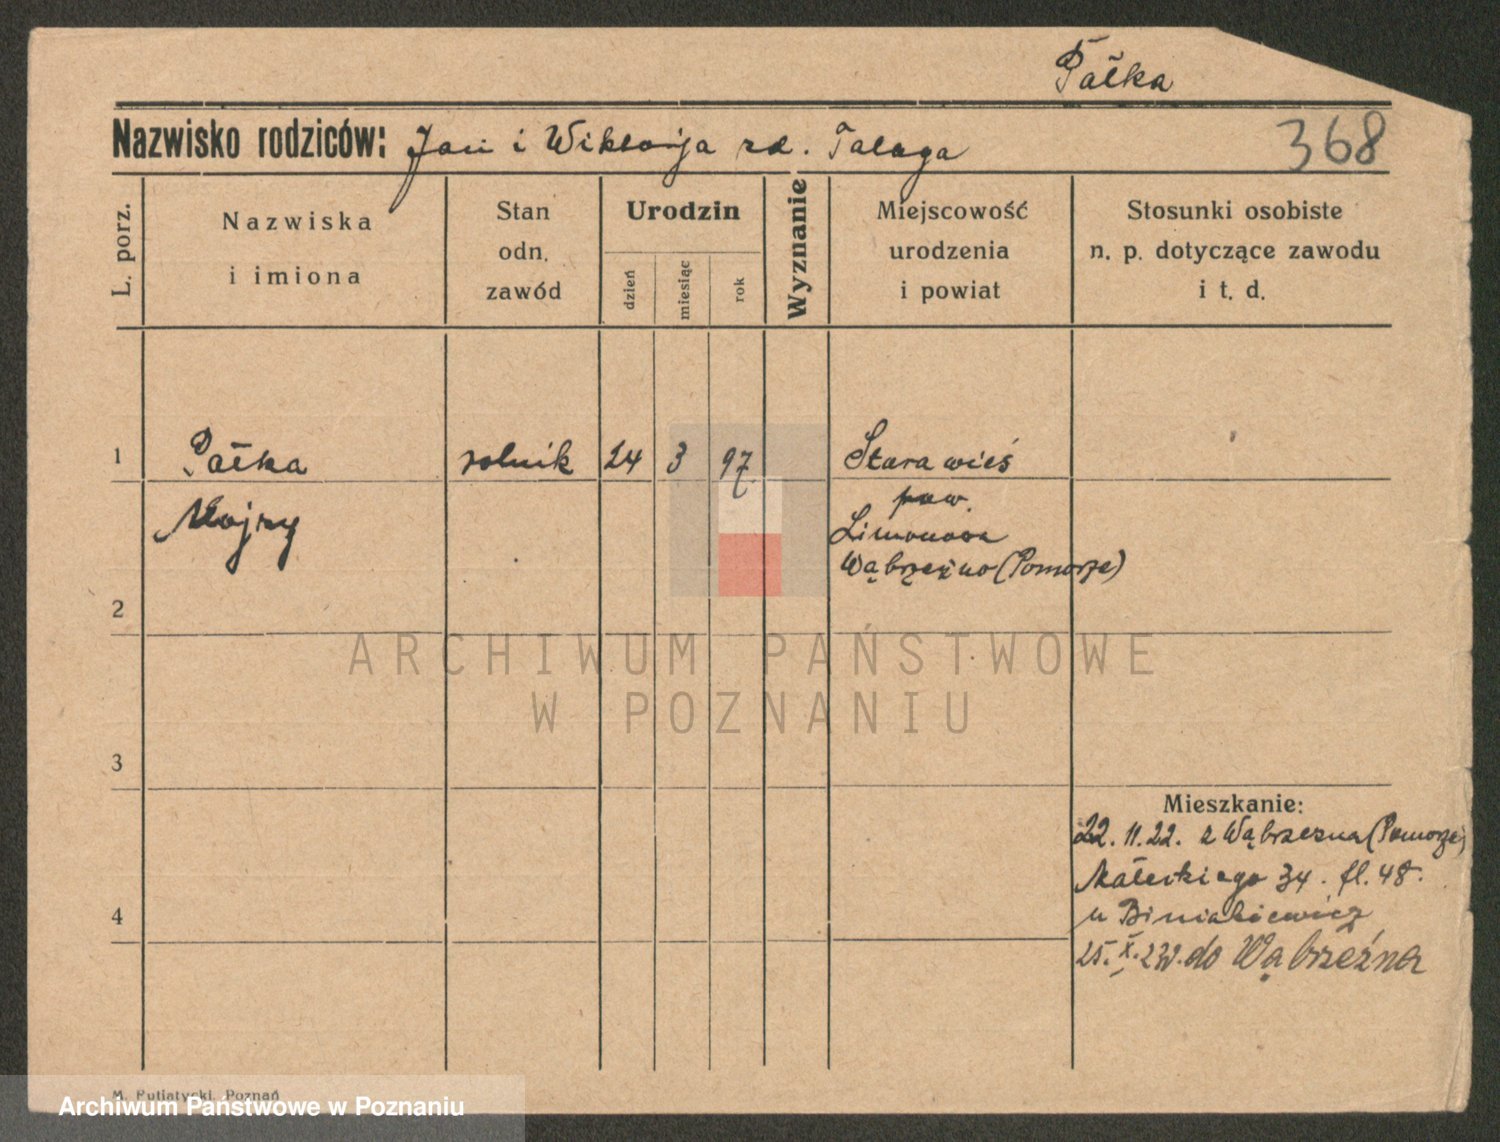 Pałka
Nazwisko rodziców: Jan i Wiktorja rd. Talaga
368
L. porz.
Nazwiska i imiona
Stan odn. zawód
Urodzin
dzień
miesiąc
rok
Wyznanie
Miejscowość urodzenia i powiat
Stosunki osobiste n. p. dotyczące zawodu i t. d.
1 Pałka rolnik 24 3 97 Stara wieś
Alojzy pow.
Limonowa
Wąbrzeźno (Pomorze)
2
3
4
ARCHIWUM PAŃSTWOWE
W POZNANIU
Mieszkanie:
22. 11. 22. z Wąbrzezna (Pomorze)
Małeckiego 34. fl. 48.
u Biniakiewicz
25. X. 23 w. do Wąbrzeźna
M. Putiatycki, Poznań
Archiwum Państwowe w Poznaniu